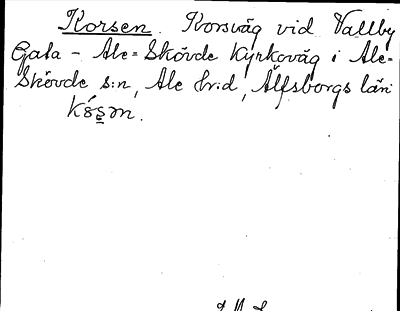 Korsen. Korsväg vid Vallby
Gata - Ale-Skövde Kyrkoväg i Ale-
Skövde s:n, Ale hr:d, Älfsborgs län